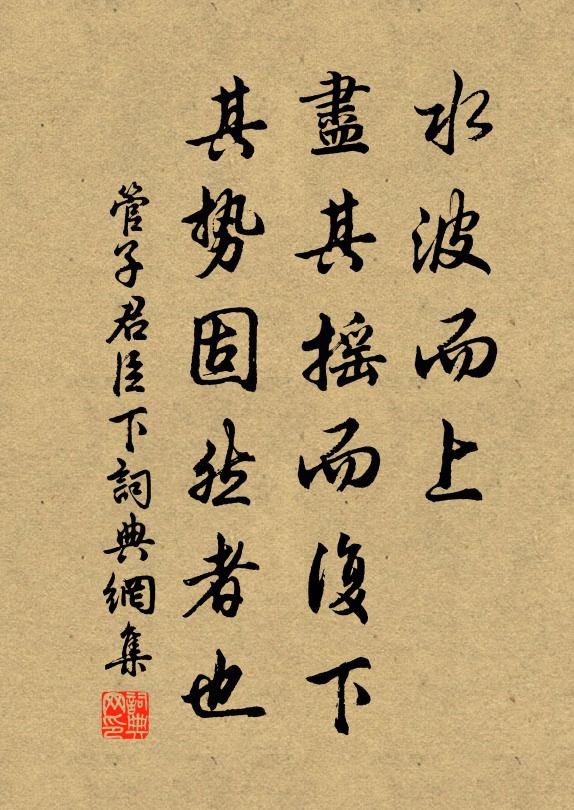 水波而上
盡其摇而復下
其勢固然者也
管子君臣下詞典網集
詞典网印